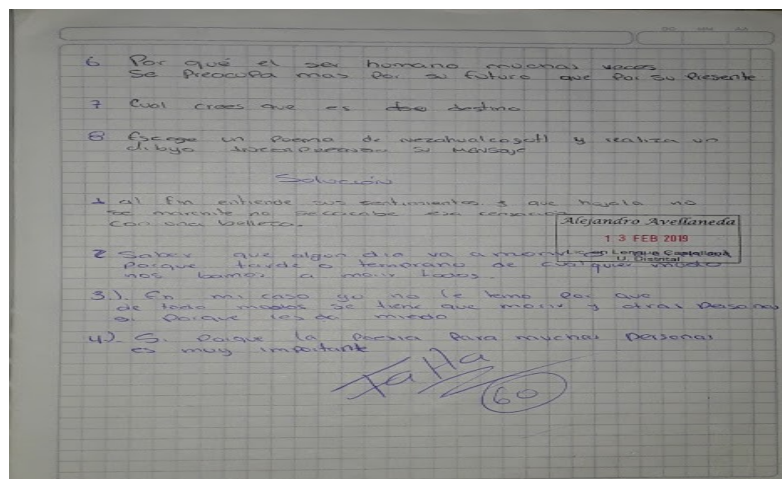 6 Por qué el ser humano muchas veces
se preocupa mas por su futuro que por su presente
7 Cual crees que es destino
8 Escoge un poema de nezahualcoyotl y realiza un
dibujo su mensaje
Solución
1 al fin entiende sus sentimientos que no
se marchite no esa
con una belleza.
Alejandro Avellaneda
13 FEB 2019
Lengua Castellana
U. Distrital
2 Saber que algun dia va a morir
Porque tarde o temprano de cualquier modo
nos bamos a morir todos.
3.). En mi caso yo no le temo por que
de todo modos se tiene que morir y otras Personas
si porque les da miedo
4). Si porque la poesia para muchas personas
es muy importante
Falta
60